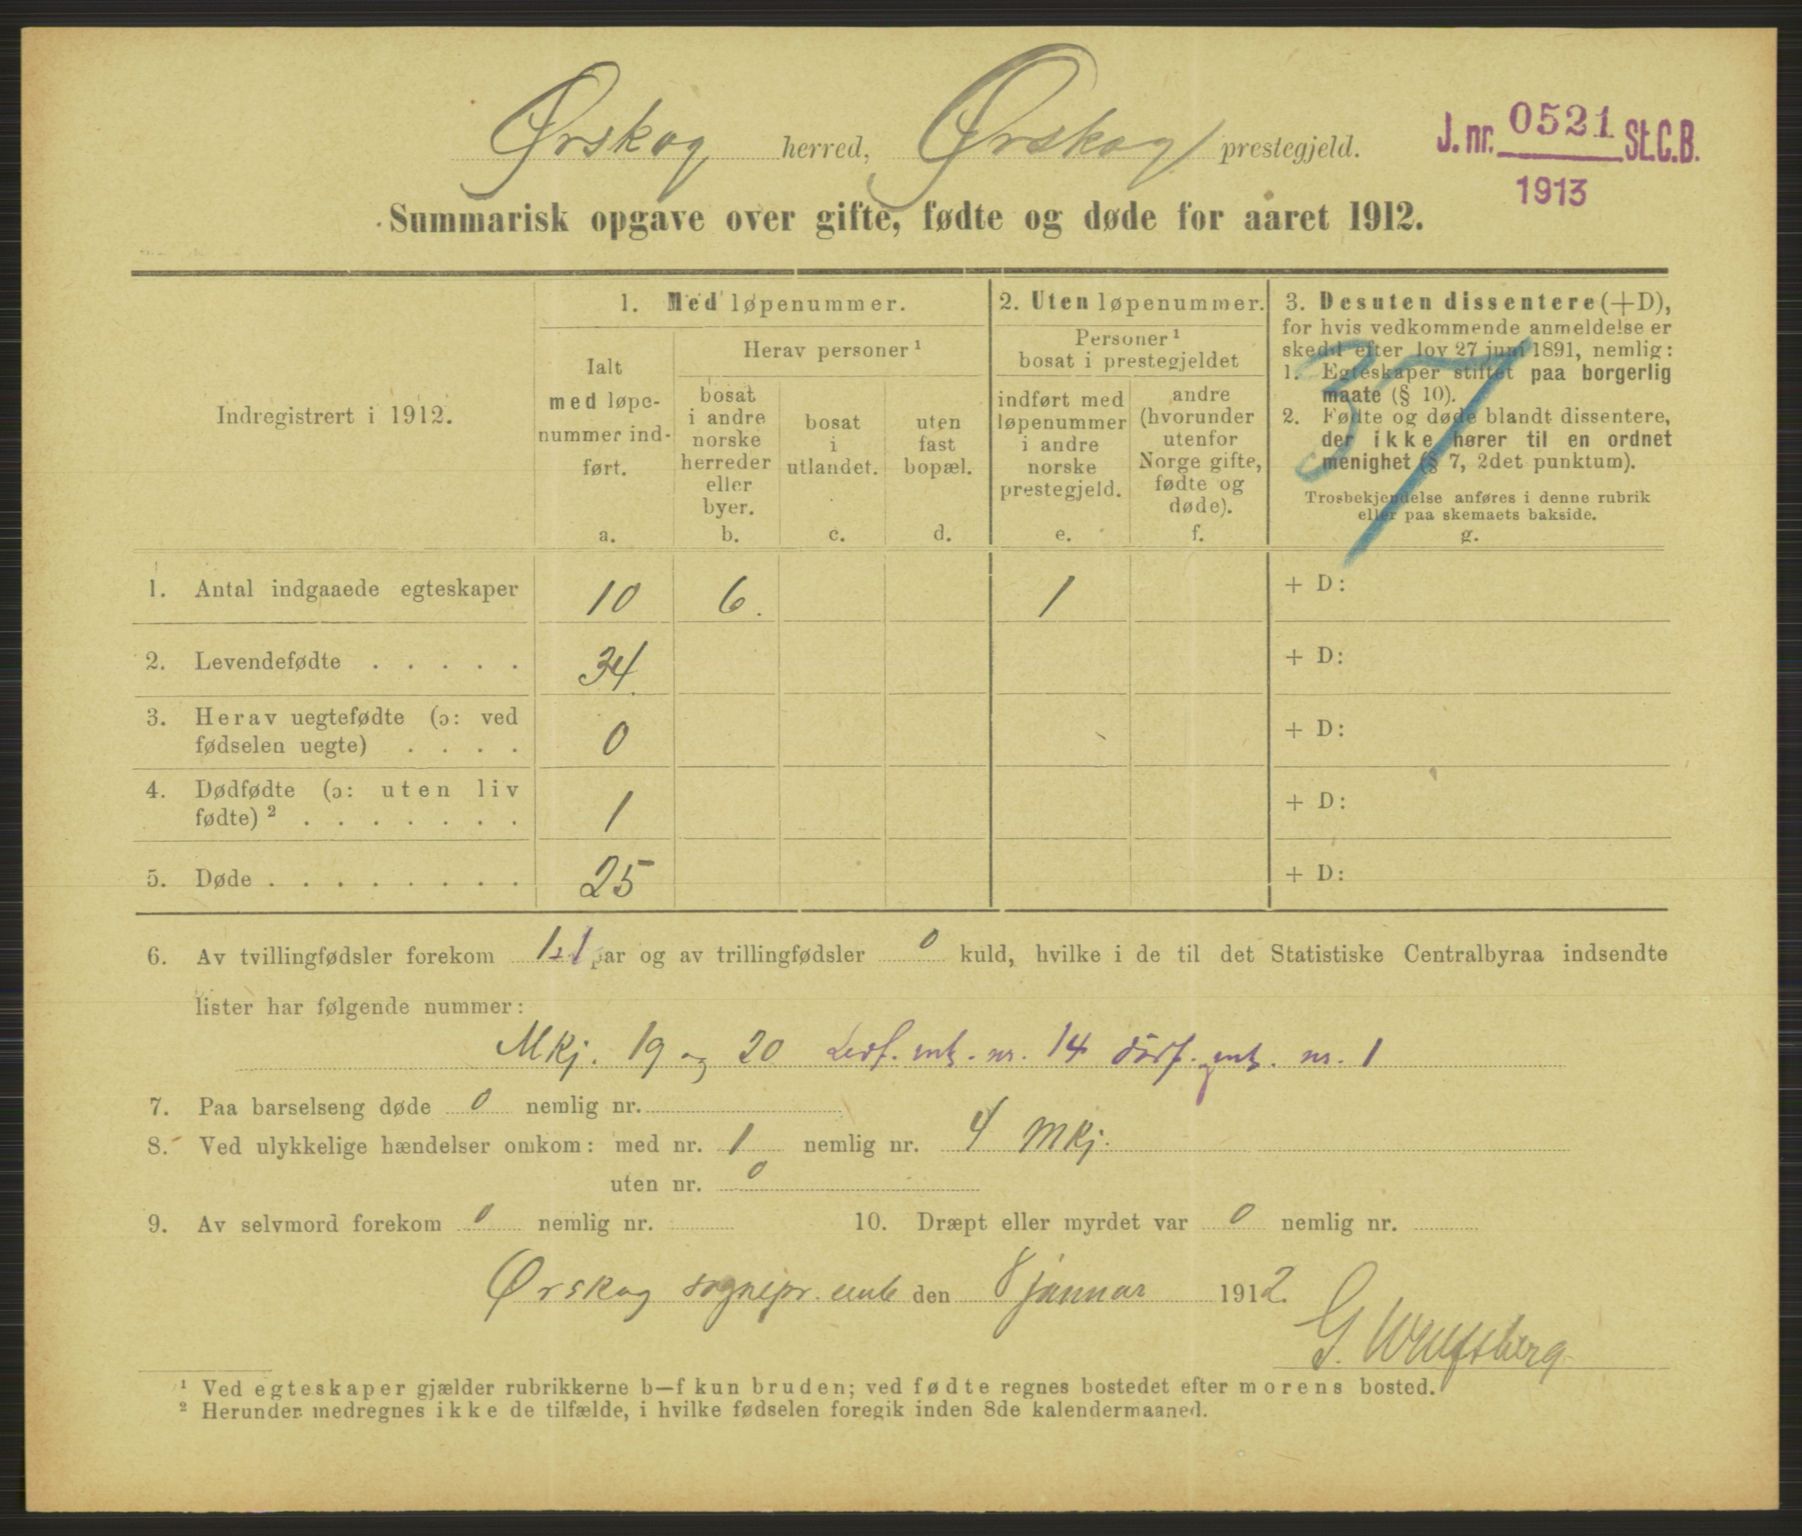 Ørskog herred, Ørskog prestegjeld.
J. nr. 0521 St.C.B.
1913
Summarisk opgave over gifte, fødte og døde for aaret 1912.
Indregistrert i 1912.
1. Med løpenummer.
Ialt
med løpe-
nummer ind-
ført.
a.
Herav personer¹
bosat
i andre
norske
herreder
eller
byer.
b.
bosat
i
utlandet.
c.
uten
fast
bopæl.
d.
2. Uten løpenummer.
Personer¹
bosat i prestegjeldet
indført med
løpenummer
i andre
norske
prestegjeld.
e.
andre
(hvorunder
utenfor
Norge gifte,
fødte og
døde).
f.
3. Desuten dissentere (+D),
for hvis vedkommende anmeldelse er
skedd efter lov 27 juni 1891, nemlig:
1. Egteskaper stiftet paa borgerlig
maate (§ 10).
2. Fødte og døde blandt dissentere,
der ikke hører til en ordnet
menighet (§ 7, 2det punktum).
Trosbekjendelse anføres i denne rubrik
eller paa skemaets bakside.
g.
37
1. Antal indgaaede egteskaper 10 6. 1 + D:
2. Levendefødte . . . . . 34. + D:
3. Herav uegtefødte (ɔ: ved
fødselen uegte) . . . . 0 + D:
4. Dødfødte (ɔ: uten liv
fødte)² . . . . . . . 1 + D:
5. Døde . . . . . . . . 25 + D:
6. Av tvillingfødsler forekom 1+1 par og av trillingfødsler 0 kuld, hvilke i de til det Statistiske Centralbyraa indsendte
lister har følgende nummer:
Mkj. 19 og 20 Levf. mk. nr. 14 dødf. mk. nr. 1
7. Paa barselseng døde 0 nemlig nr.
8. Ved ulykkelige hændelser omkom: med nr. 1 nemlig nr. 4 Mkj.
uten nr. 0
9. Av selvmord forekom 0 nemlig nr. 10. Dræpt eller myrdet var 0 nemlig nr.
Ørskog sognepr. emb. den 8 januar 1912.
G.
¹ Ved egteskaper gjælder rubrikkerne b—f kun bruden; ved fødte regnes bostedet efter morens bosted.
² Herunder medregnes ikke de tilfælde, i hvilke fødselen foregik inden 8de kalendermaaned.